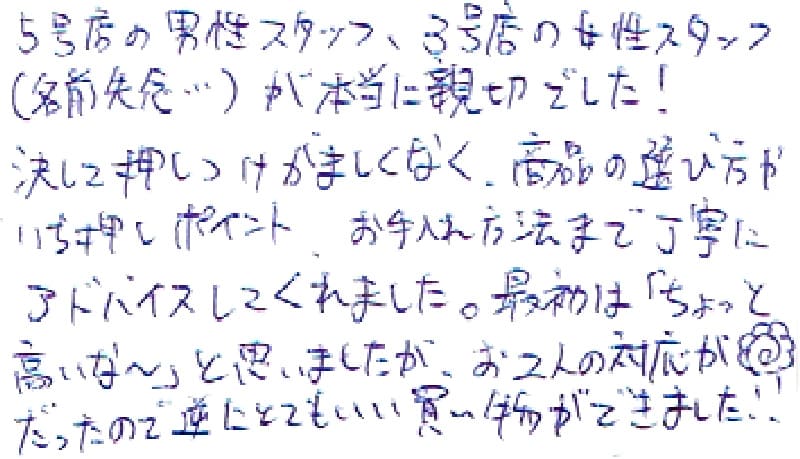 5号店の男性スタッフ、3号店の女性スタッフ
(名前失念…)が本当に親切でした!
決して押しつけがましくなく、商品の選び方や
いち押しポイント、お手入れ方法まで丁寧に
アドバイスしてくれました。最初は「ちょっと
高いな〜」と思いましたが、お2人の対応が
だったので逆にとてもいい買い物ができました!!